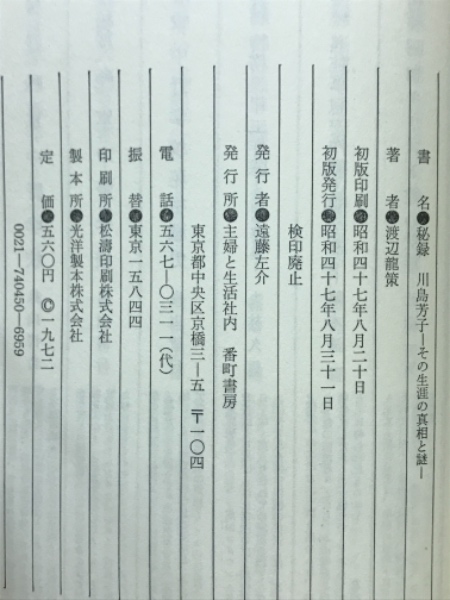 書名●秘録 川島芳子―その生涯の真相と謎―
著者●渡辺龍策
初版印刷●昭和四十七年八月二十日
初版発行●昭和四十七年八月三十一日
検印廃止
発行者●遠藤左介
発行所●主婦と生活社内 番町書房
東京都中央区京橋三―五 〒一〇四
電話●五六七―〇三一一(代)
振替●東京一五八四四
印刷所●松濤印刷株式会社
製本所●光洋製本株式会社
定価●五六〇円 ©一九七二
0021―740450―6959